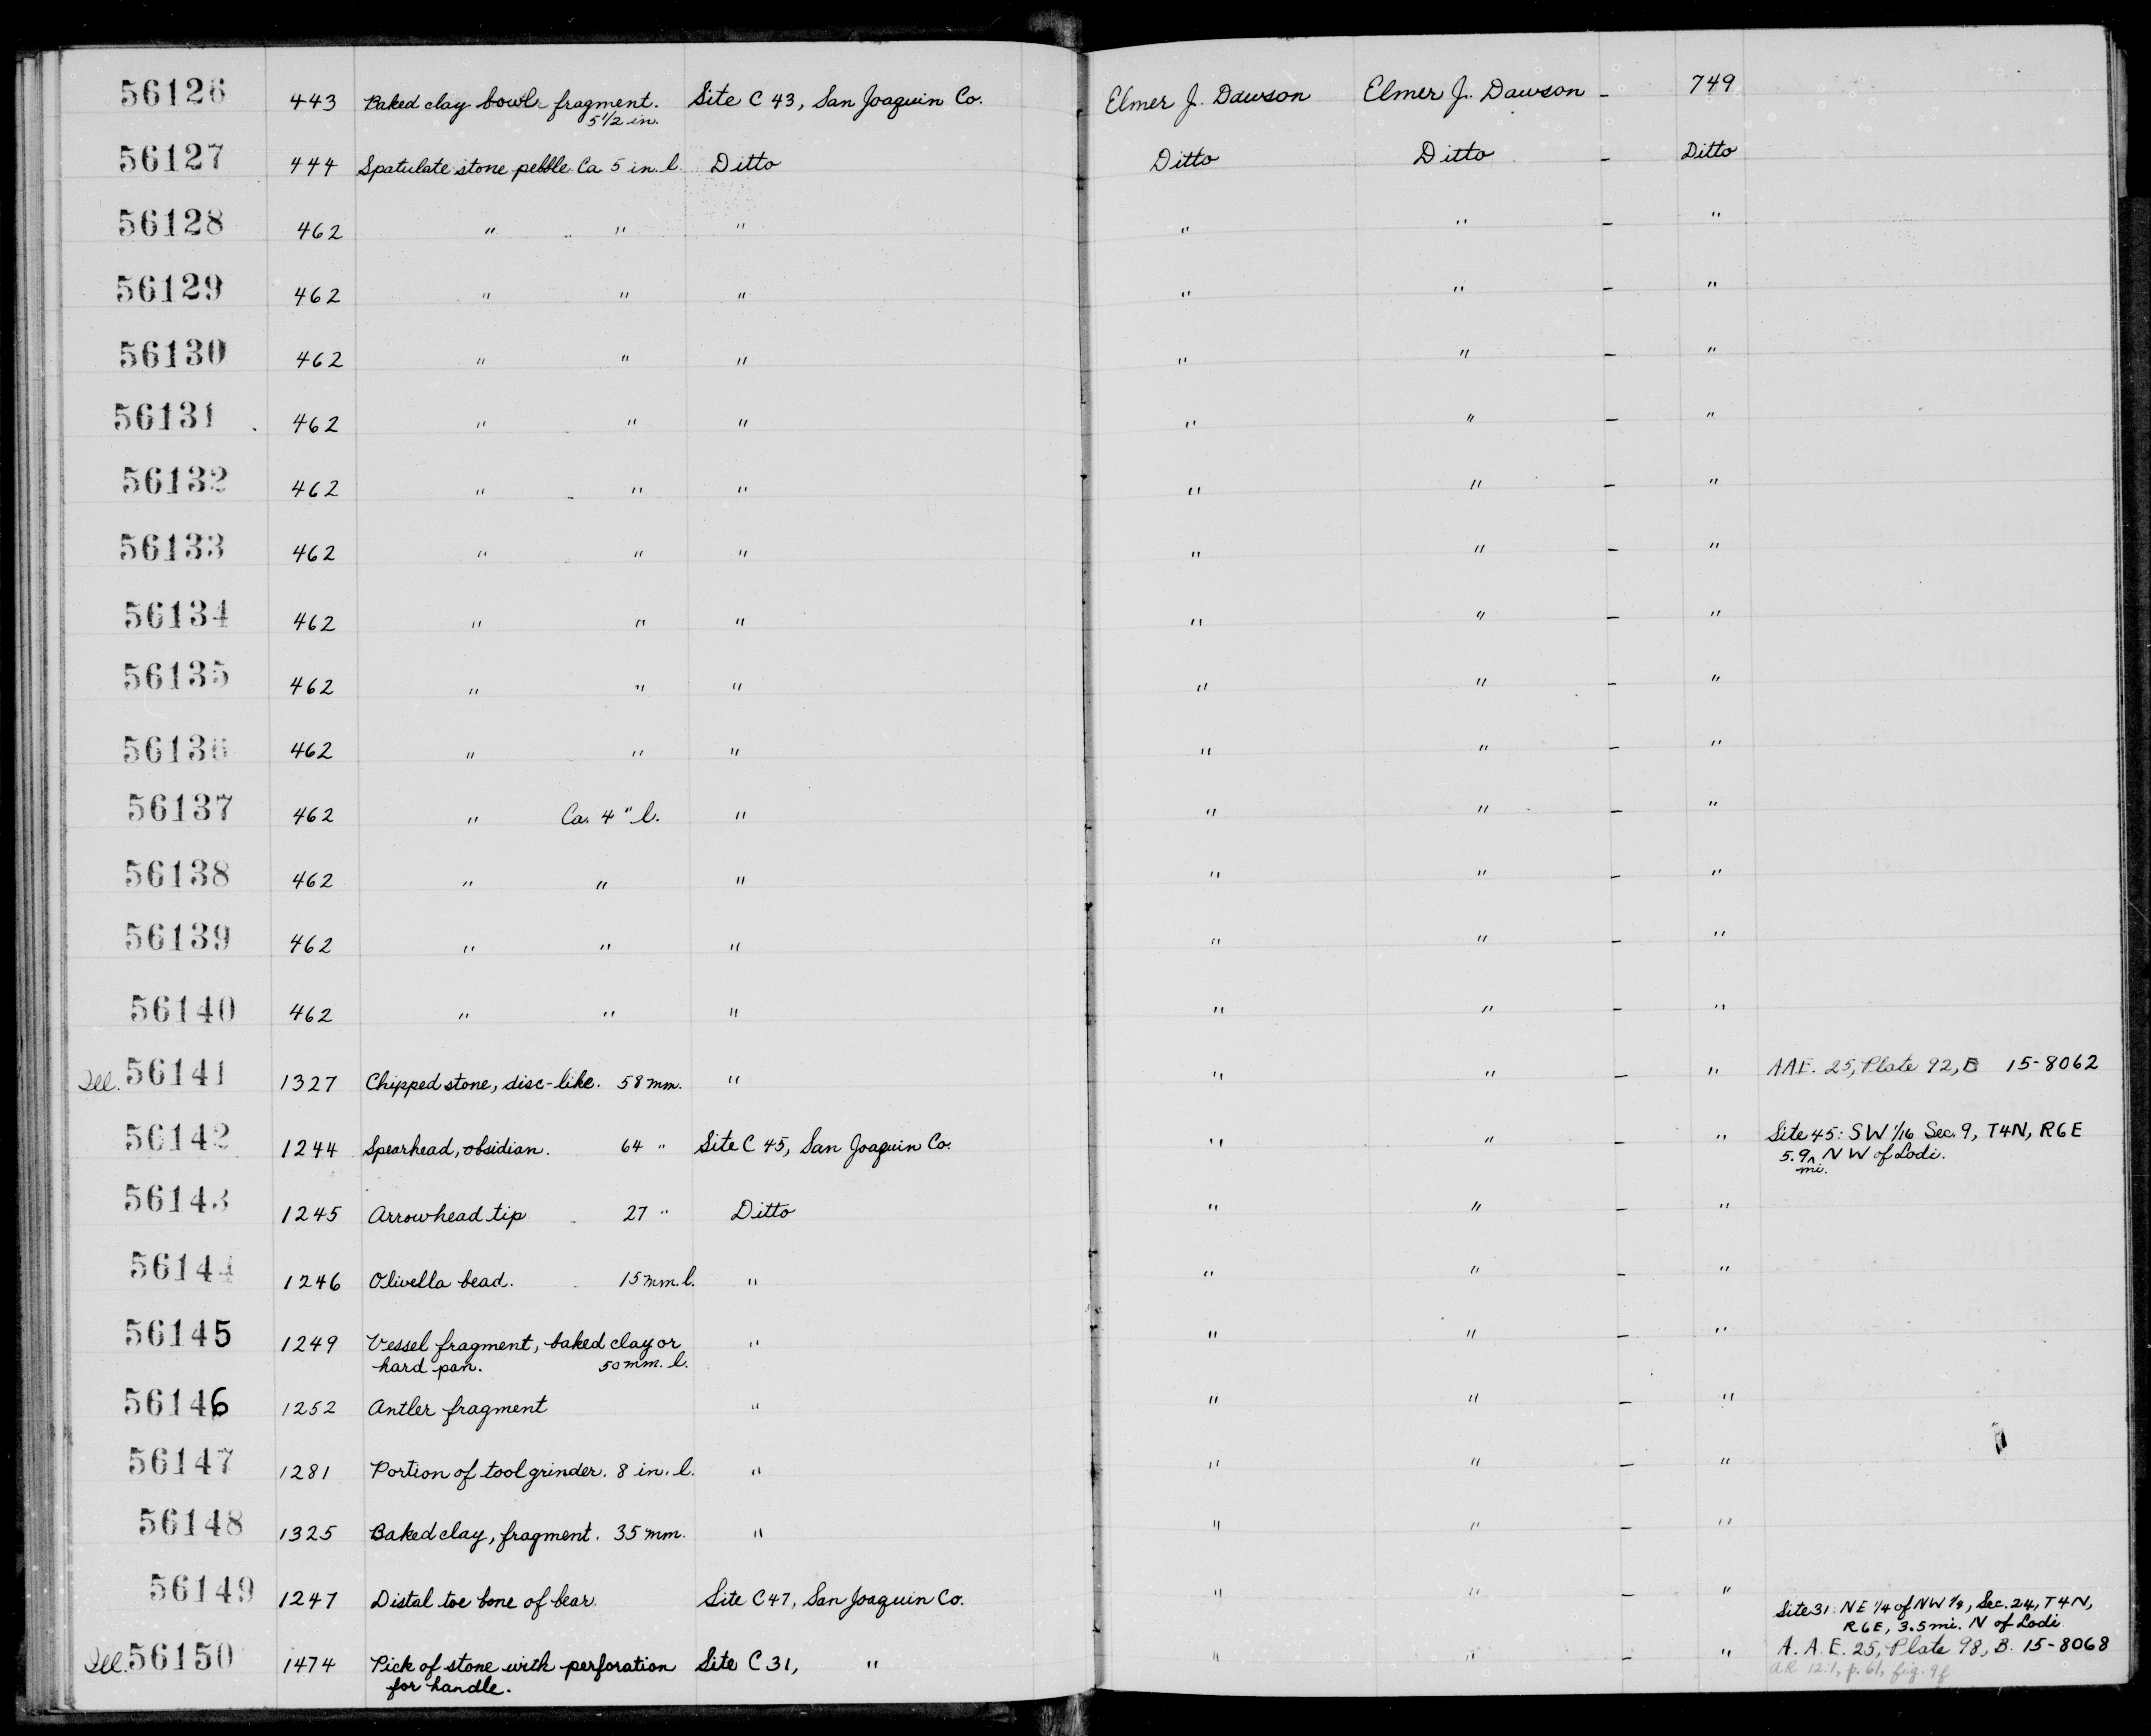 56126 443 Baked clay bowl fragment. Site C 43, San Joaquin Co. Elmer J. Dawson Elmer J. Dawson - 749
5 1/2 in.
56127 444 Spatulate stone pebble. Ca. 5 in. l. Ditto Ditto Ditto - Ditto
56128 462 " " " " " - "
56129 462 " " " " " - "
56130 462 " " " " " - "
56131 462 " " " " " - "
56132 462 " " " " " - "
56133 462 " " " " " - "
56134 462 " " " " " - "
56135 462 " " " " " - "
56136 462 " " " " " - "
56137 462 " Ca. 4 " l. " " " - "
56138 462 " " " " " - "
56139 462 " " " " " - "
56140 462 " " " " " - "
Ill. 56141 1327 Chipped stone, disc-like. 58 mm. " " " - " AAE. 25, Plate 92, B 15-8062
56142 1244 Spearhead, obsidian. 64 " Site C 45, San Joaquin Co. " " - " Site 45: SW 1/16 Sec. 9, T4N, R6E
5.9 mi. N W of Lodi.
56143 1245 Arrowhead tip 27 " Ditto " " - "
56144 1246 Olivella bead. 15 mm. l. " " " - "
56145 1249 Vessel fragment, baked clay or " " " - "
hard pan. 50 mm. l.
56146 1252 Antler fragment " " " - "
56147 1281 Portion of tool grinder. 8 in. l. " " " - "
56148 1325 Baked clay, fragment. 35 mm. " " " - "
56149 1247 Distal toe bone of bear. Site C 47, San Joaquin Co. " " - "
Site 31: NE 1/4 of NW 1/4, Sec. 24, T4N,
R6E, 3.5 mi. N of Lodi
Ill. 56150 1474 Pick of stone with perforation Site C 31, " " " - " A. A. E. 25, Plate 98, B. 15-8068
for handle. AR 12:1, p. 61, fig. 9f